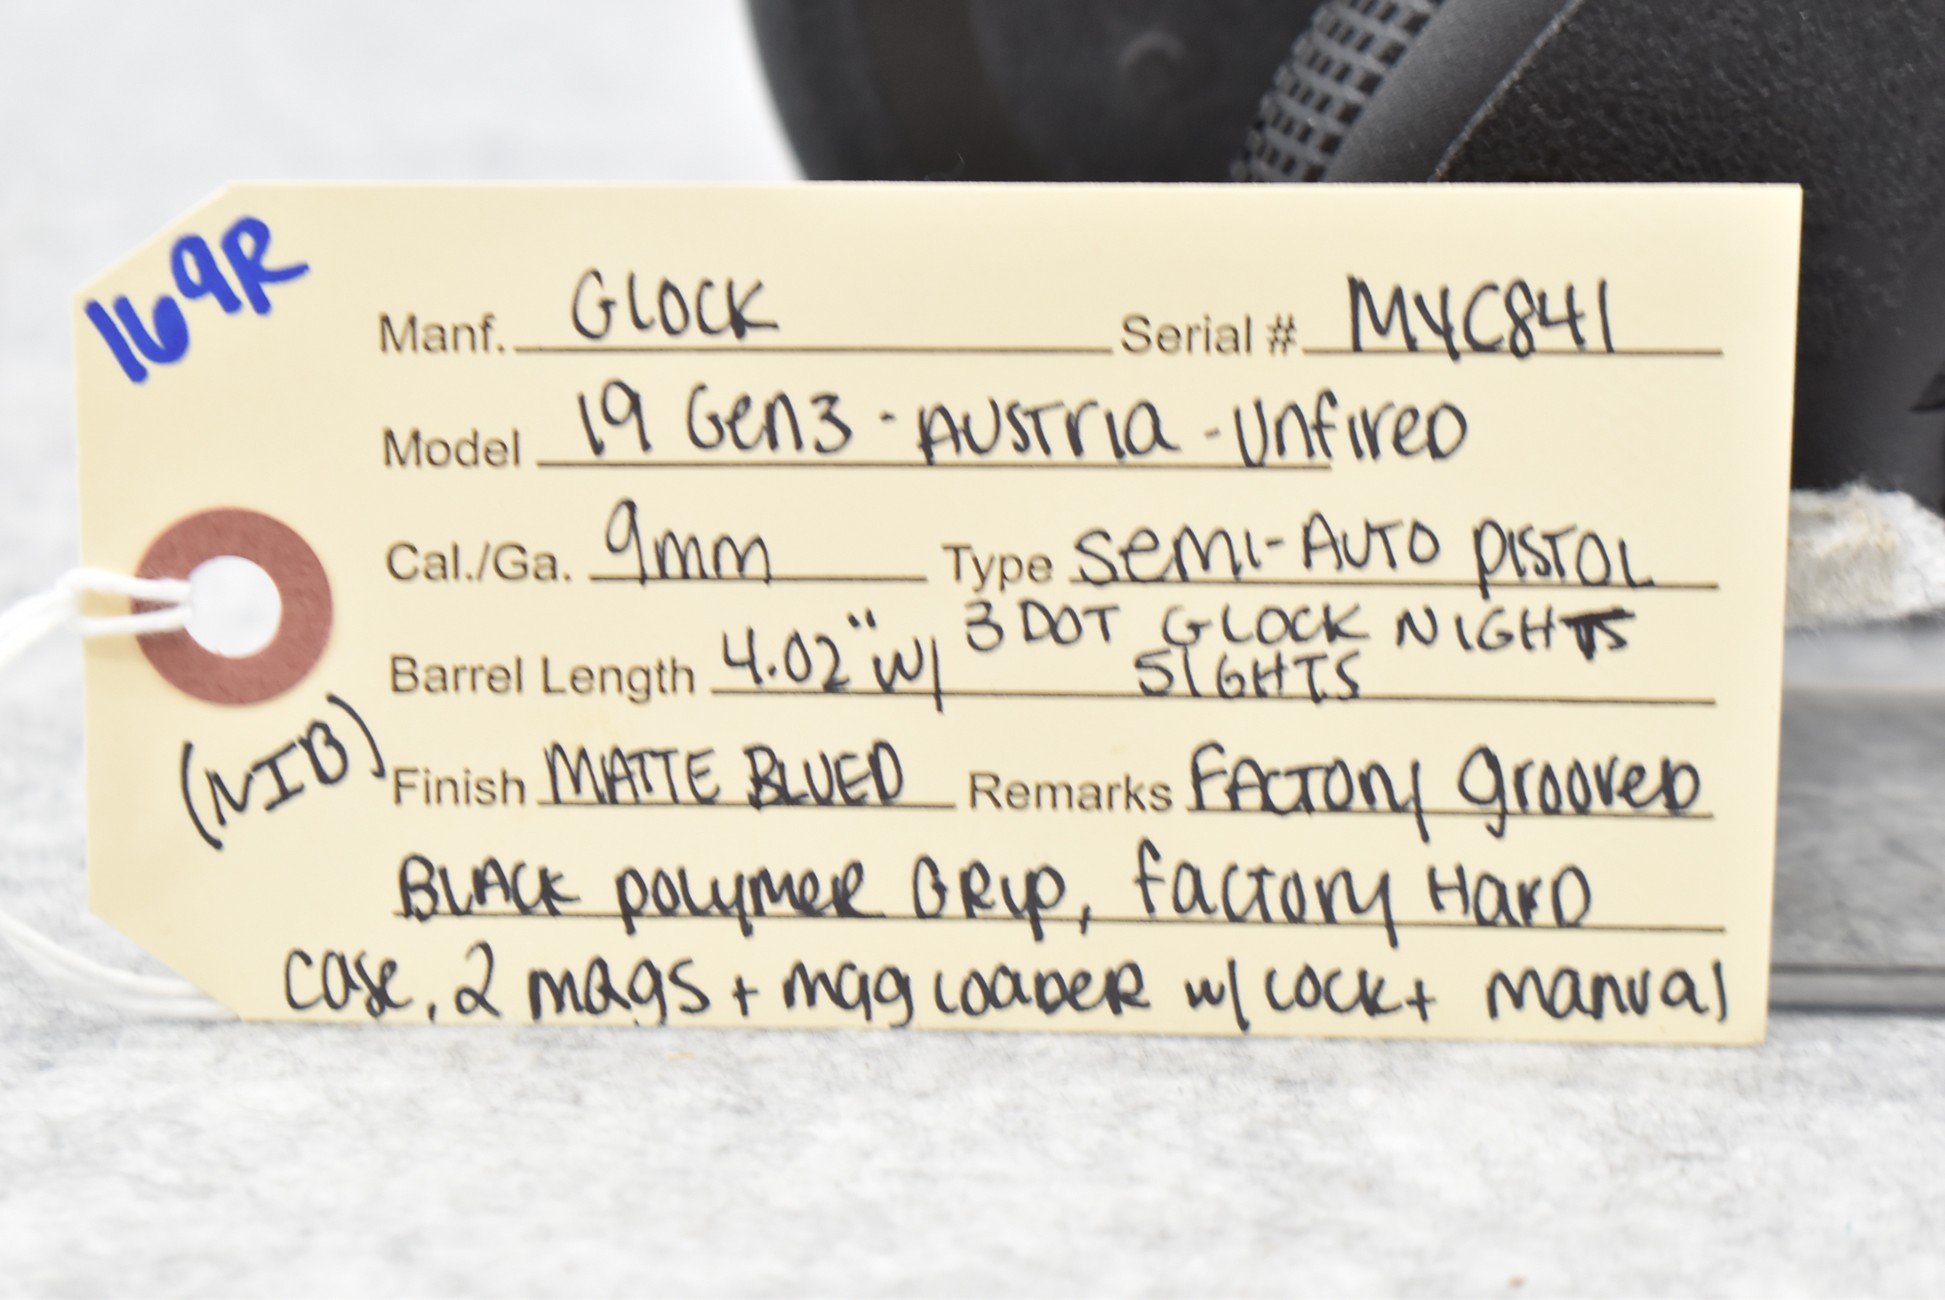 169R
Manf. GLOCK Serial # MYC841
Model 19 Gen3 - AUSTRIA - UnfireD
Cal./Ga. 9mm Type Semi-AUTO PISTOL
Barrel Length 4.02" w/ 3 DOT GLOCK NIGHTS
SIGHTS
(NIB)
Finish MATTE BLUED Remarks FACTORY GrooveD
BLACK POLYMER GRIP, FACTORY HARD
CASE, 2 MAGS + MAG LOADER w/ LOCK + Manual